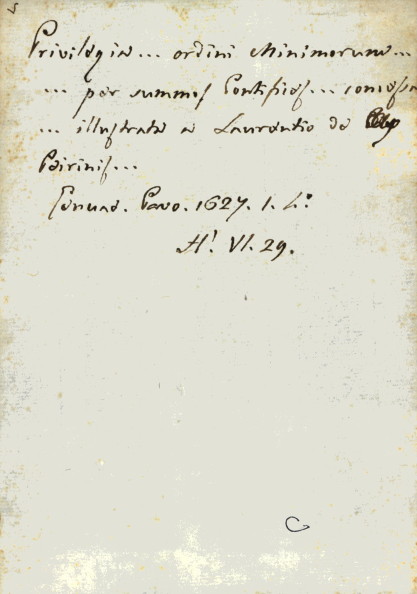 Privilegia... ordini Minimorum...
... per summos Pontifices... concessa
... illustrata a Laurentio de
Peirinis...
Genuae. Pavo. 1627. 1. 4°
H! VI. 29.